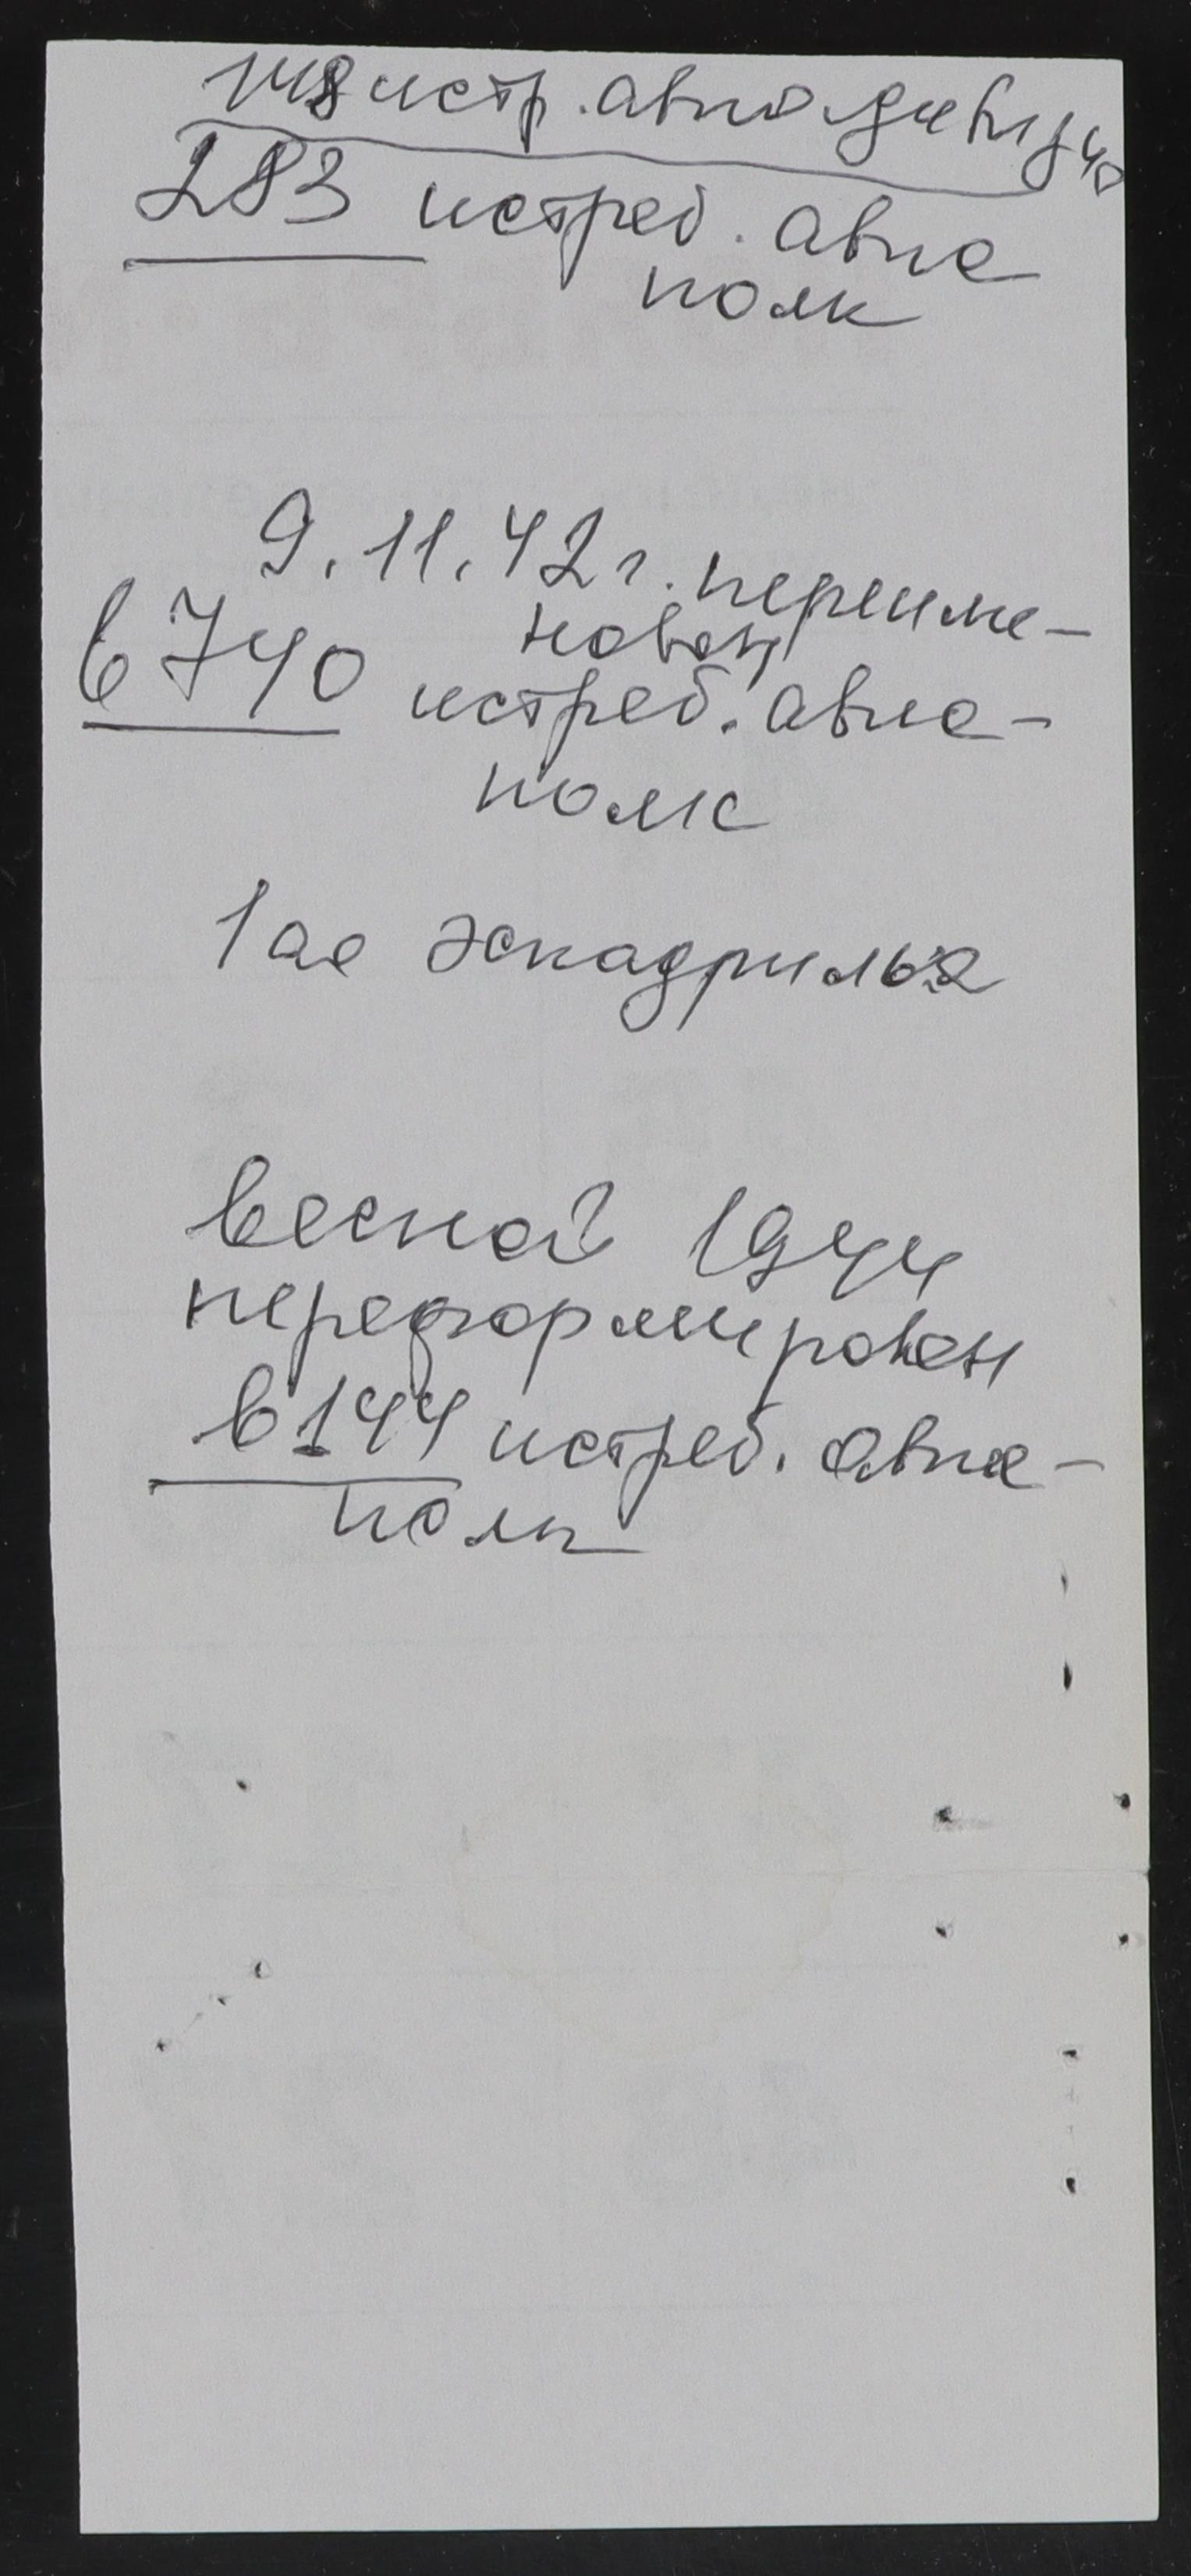 148 истр. авиа дивизию
283 истреб. авиа
полк
9.11.42 г. переиме-
нован
в 740 истреб. авиа-
полк
1ая эскадрилья
весной 1944
переформирован
в 144 истреб. авиа-
полк